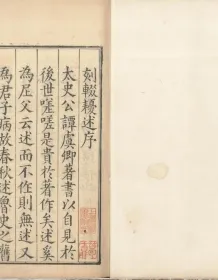 刻輟耰述序
太史公譚虞卿著書以自見於
後世嗟嗟是貴於著作矣述奚
為尼父云述而不作則無述又
為君子病故春秋述魯史之舊